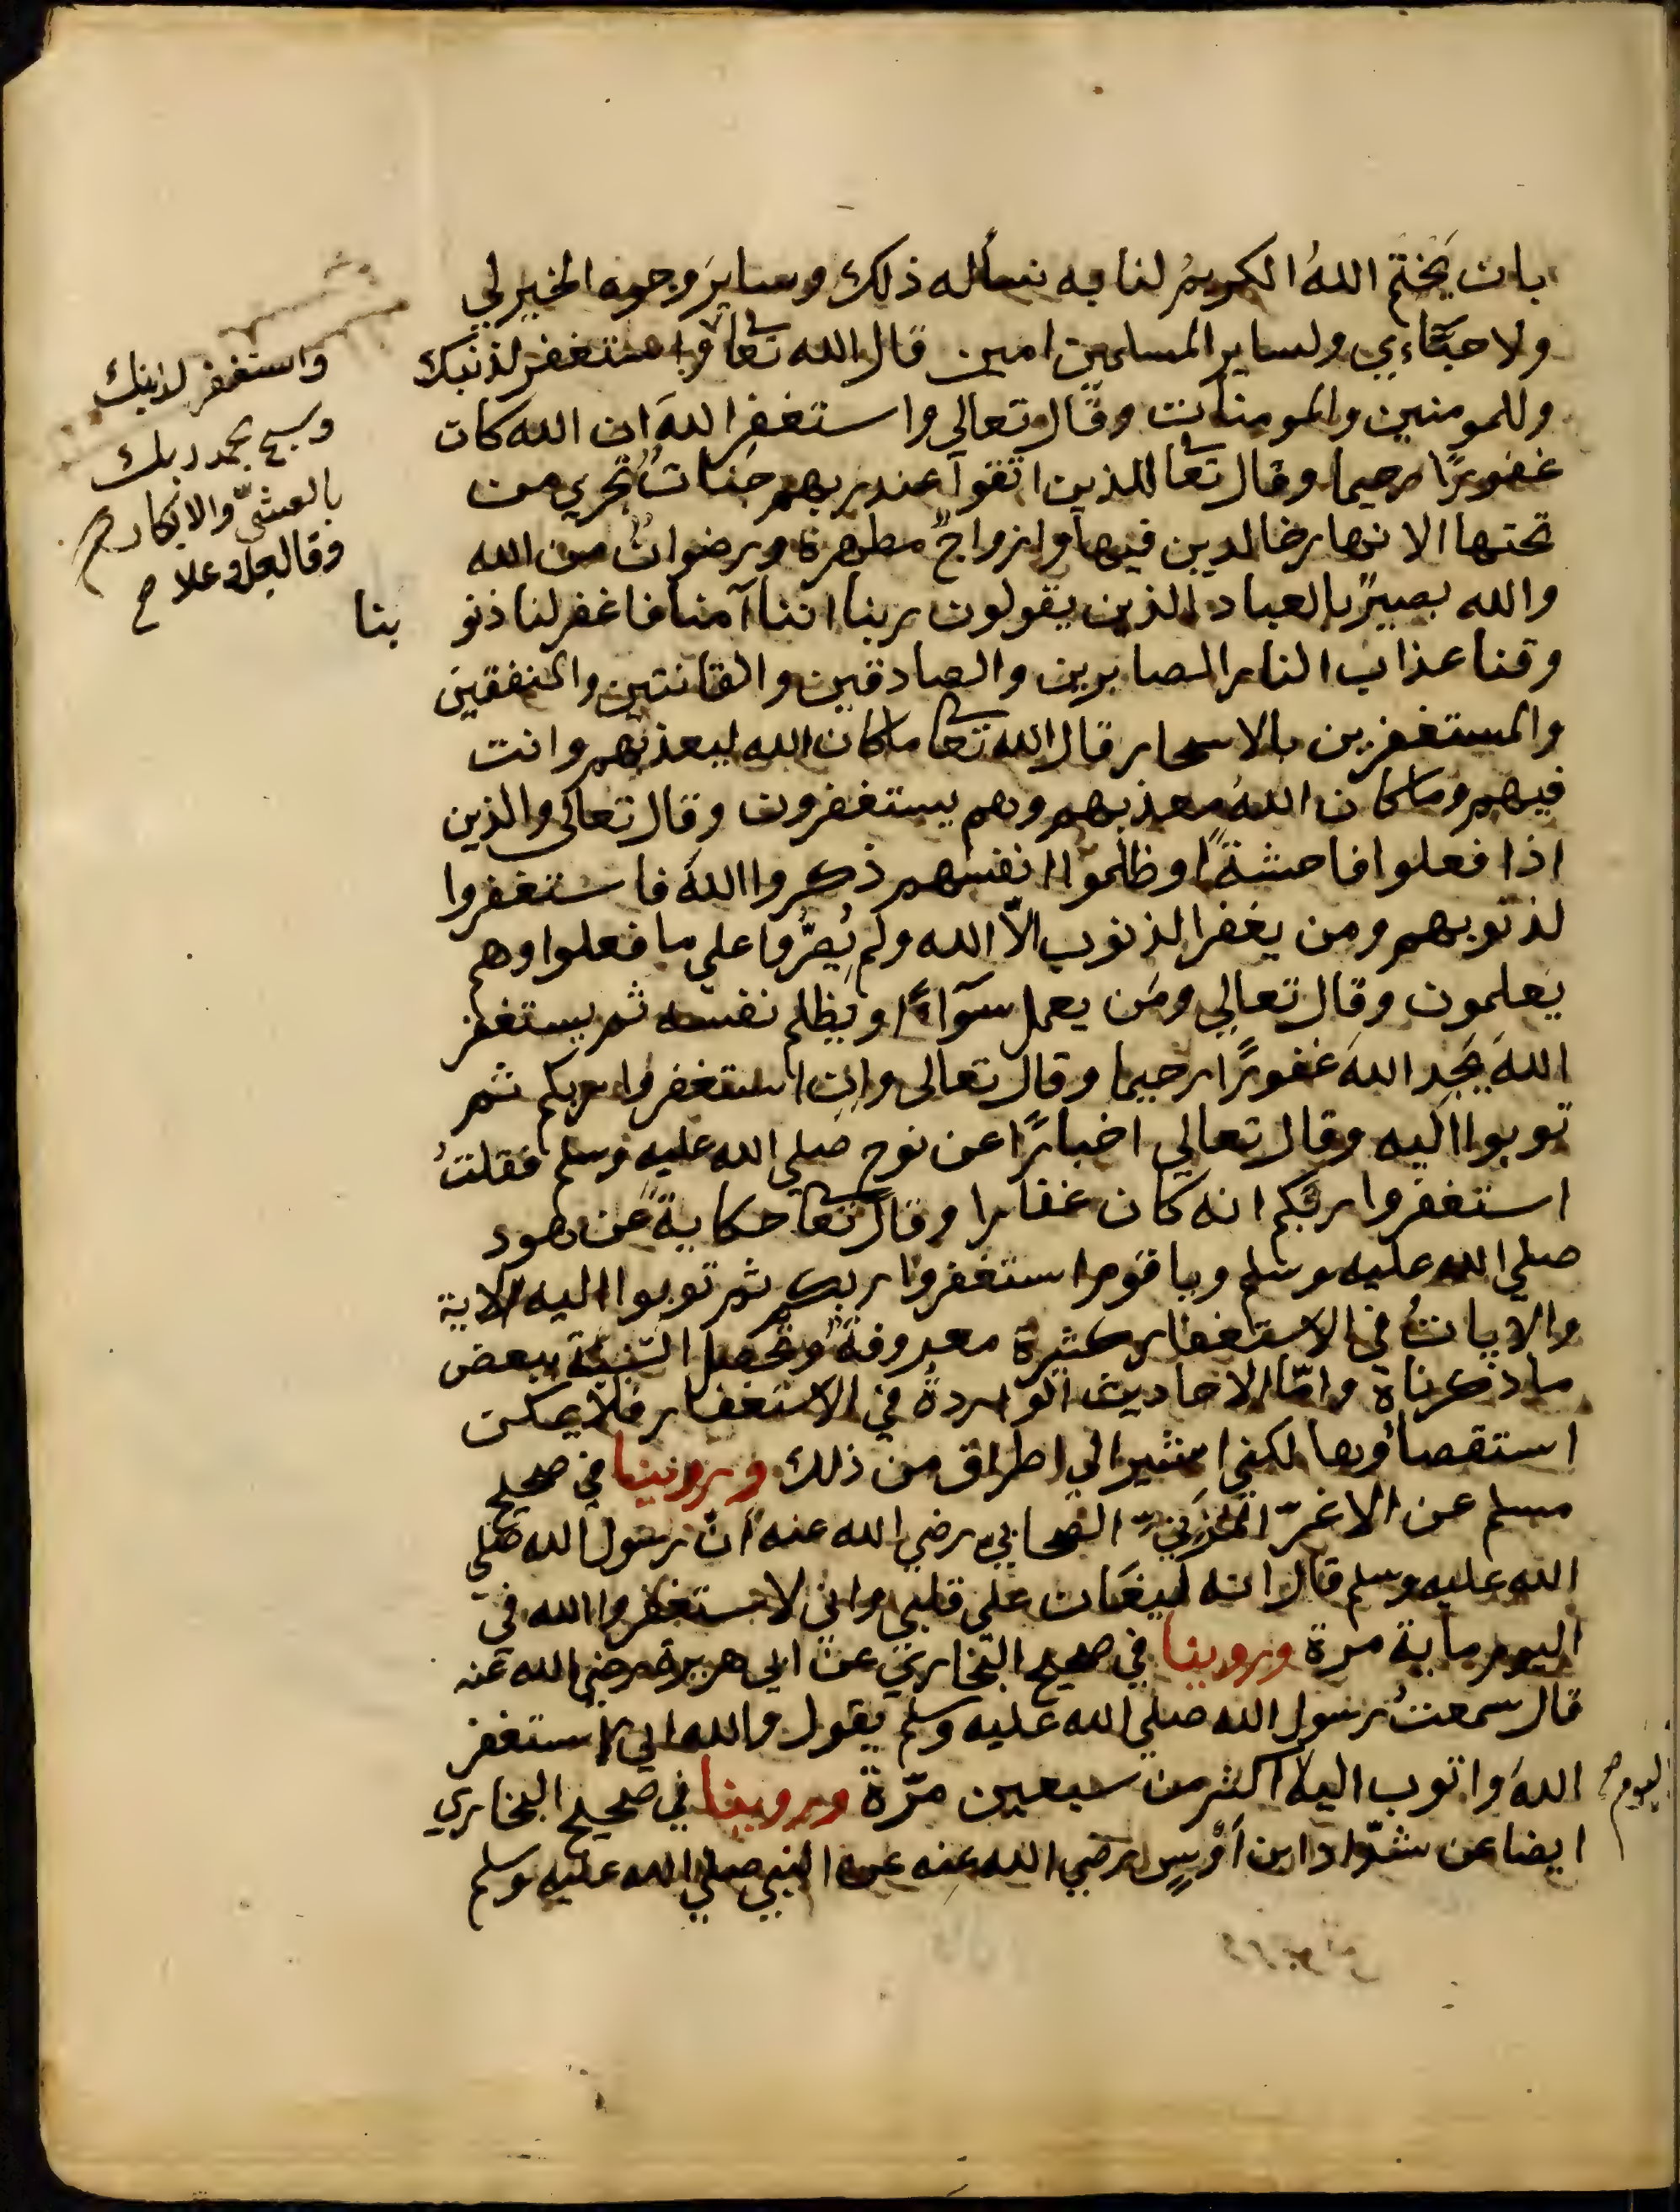 بان يختم اللهُ الكريمُ لنا به نسأله ذلك وسايرَ وجوه الخير لي
ولاحبّاءي ولساير المسلمين امين قال الله تعا واستغفر لذنبك
وللمومنين والمومنات وقال تعالي واستغفِر اللهَ ان الله كان
غفورًا رحيما وقال تعا للذين اتقوا عند ربهم جناتٌ تجري من
تحتها الانهار خالدين فيها وازواجٌ مطهرة ورضوانٌ من الله
والله بصيرٌ بالعباد الذين يقولون ربنا اننا آمنا فاغفر لنا ذنو بنا
وقنا عذاب النار الصابرين والصادقين والقانتين والمنفقين
والمستغفرين بالاسحار قال الله تعا ما كان الله ليعذبهم وانت
فيهم وما كان اللهُ معذبهم وهم يستغفرون وقال تعالى والذين
اذا فعلوا فاحشةً او ظلموا انفسهم ذكروا اللهَ فاستغفروا
لذنوبهم ومن يغفر الذنوب الّا الله ولم يُصرُّوا علي ما فعلوا وهم
يعلمون وقال تعالي ومَن يعمل سوٓاءً او يظلم نفسه ثم يستغفر
اللهَ يَجدِ اللهَ غفورًا رحيما وقال تعالى وان استغفروا ربكم ثم
توبوا اليه وقال تعالي اخبارًا عن نوح صلي الله عليه وسلم فقلتُ
استغفروا ربّكم انه كان غفارا وقال تعا حكايةً عن هود
صلي الله عليه وسلم ويا قوم استغفروا ربكم ثم توبوا اليه الاية
والآياتُ في الاستغفار كثيرة معروفةٌ وتحصل التنبيه ببعض
ما ذكرناه وامّا الاحاديث الواردةُ في الاستغفار فلا يمكن
استقصاؤها لكني اشير الي اطراف من ذلك وروينا في صحيح
مسلم عن الاغرّ المُزَنيّ الصّحابي رضي الله عنه انّ رسول الله صلي
الله عليه وسلم قال انه ليغان علي قلبي واني لاستغفروا الله في
اليوم ماية مرة وروينا في صحيح البخاري عن ابي هريرة رضي الله عنه
قال سمعتُ رسول الله صلي الله عليه وسلم يقول والله اني لاستغفر
اللهَ واتوب اليه اكثر من سبعين مرّة وروينا في صحيح البخاري
ايضا عن شدّاد ابن اَوْسٍ رضي الله عنه عن النبي صلي الله عليه وسلم
واستغفر لذنبك
وسبح بحمد ربك
بالعشيّ والابكار صح
وقال جل وعلا صح
اليوم صح